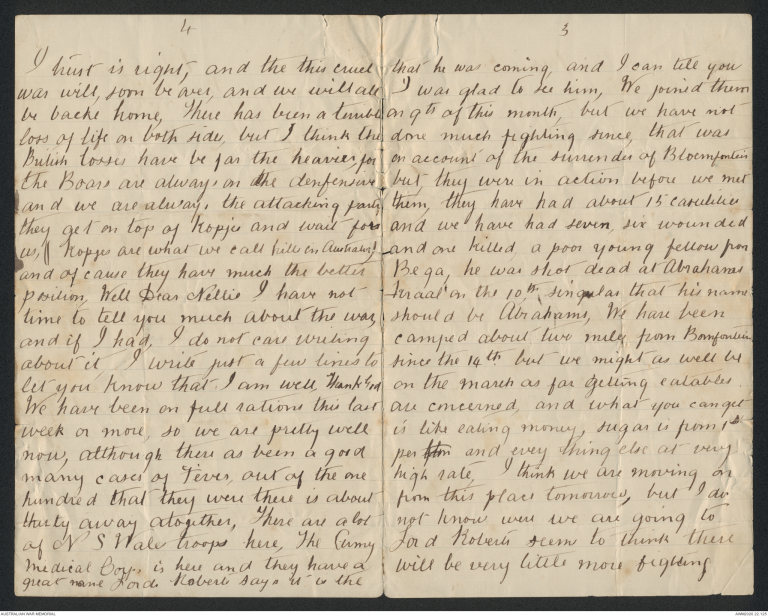 4
I trust is right, and the this cruel
war will, soon be over, and we will all
be backe home, There has been a terrible
loss of life on both side, but I think the
British losses have be far the heavier for
the Boars are always on the denfensive
and we are always the attacking party
they get on top of Kopjes and wait for
us, (Kopjes are what we call hills in Australia)
and of cause they have much the better
position, Well Dear Nellie I have not
time to tell you much about the war,
and if I had, I do not care writing
about it, I write just a few lines to
let you know that I am well Thank God
We have been on full rations this last
week or more, so we are pretty well
now, although there as been a good
many cases of Fever, out of the one
hundred that they were there is about
thirty away atogether, There are a lot
of N S Wales troops here, The Army
Medical Corps is here and they have a
great name Lord Roberts says it is the
3
that he was coming, and I can tell you
I was glad to see him, We joined them
on 9th of this month, but we have not
done much fighting since, that was
on account of the surrender of Bloemfontein
but they were in action before we met
them, they have had about 15 casulities
and we have had seven, six wounded
and one killed, a poor young fellow from
Bega, he was shot dead at Abrahams
Kraal on the 10th, singular that his name
should be Abrahams, We have been
camped about two miles from Bomfontein
since the 14th but we might as well be
on the march as far getting eatables
are concerned, and what you can get
is like eating money, sugar is from 1s
per and every thing else at very
high rate, I think we are moving on
from this place tomorrow, but I do
not know were we are going to
Lord Roberts seem to think there
will be very little more fighting
AUSTRALIAN WAR MEMORIAL